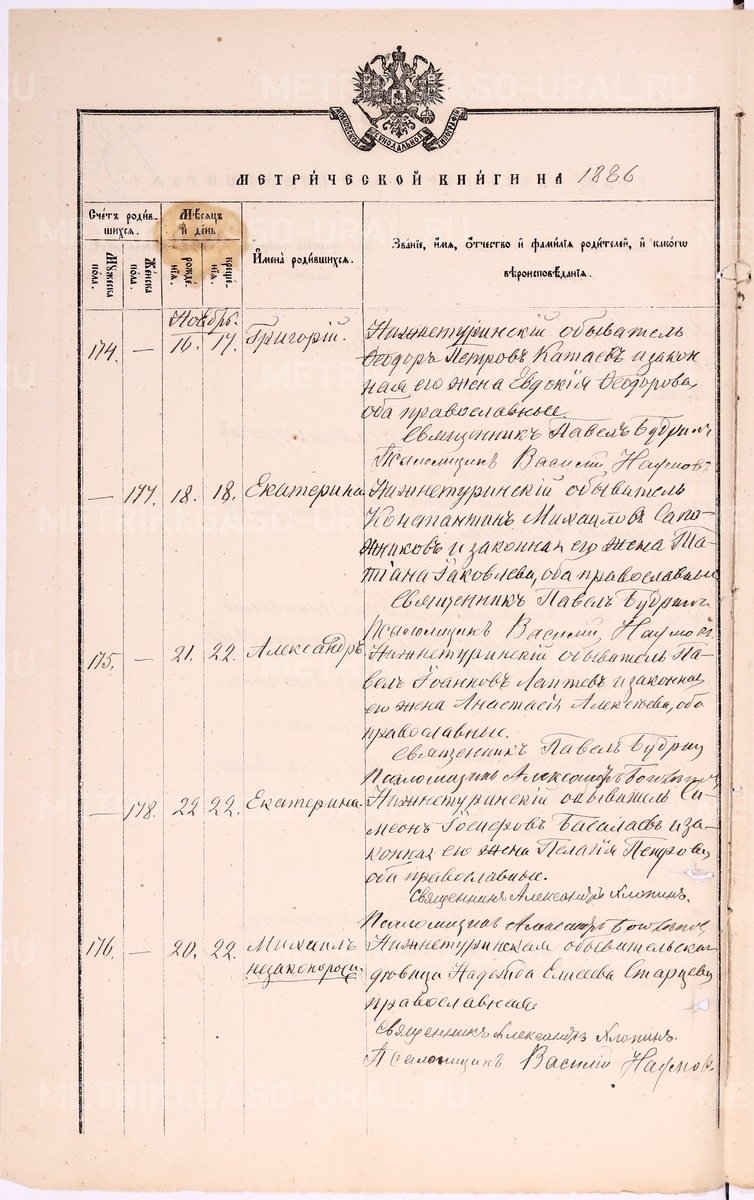 МОСКОВСКОЙ СѴНОДАЛЬНОЙ ТИПОГРАФІИ
МЕТРИ́ЧЕСКОЙ КНИ́ГИ НА 1886
Сче́тъ роди́в-
шихся.
Мꙋ́жеска по́ла.
Же́нска по́ла.
Мѣ́сяцъ
и҆ де́нь
рожде́-
нія.
креще́-
нія.
И҆мена̀ роди́вшихся.
Зва́ніе, и҆́мя, ѻ҆́тчество и҆ фамилія роди́телей, и҆ како́гѡ
вѣроисповѣ́данія.
Ноябрь.
174. — 16. 17. Григорій. Нижнетуринскій обыватель
Ѳеодоръ Петровъ Катаевъ и закон
ная его жена Евдокія Ѳеодорова,
оба православные.
Священникъ Павелъ Будринъ
Псаломщикъ Василий Наумовъ
— 177. 18. 18. Екатерина Нижнетуринскій обыватель
Константинъ Михаиловъ Сапо-
жниковъ и законная его жена Та-
тіана Іаковлева, оба православные
Священникъ Павелъ Будринъ
Псаломщикъ Василий Наумовъ
175. — 21. 22. Александръ Нижнетуринскій обыватель Па-
велъ Іоанновъ Лаптевъ и законная
его жена Анастасія Алексѣева, оба
православные.
Священникъ Павелъ Будрин
Псаломщикъ Александръ
— 178. 22 22. Екатерина Нижнетуринскій обыватель Си-
меонъ Іосифовъ Басалаевъ и за-
конная его жена Пелагія Петрова,
оба православные.
Священникъ Александръ Хлопинъ.
Псаломщикъ Александръ
176. — 20. 22. Михаилъ Нижнетуринская обывательская
незаконорожд. дѣвица Надежда Елисеева Старцева
православная
Священникъ Александръ Хлопинъ.
Псаломщикъ Василий Наумовъ
METRIKI.GASO-URAL.RU